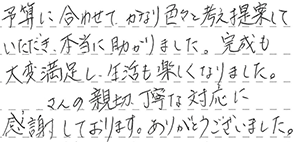 予算に合わせて、かなり色々と考え提案して
いただき、本当に助かりました。完成も
大変満足し、生活も楽しくなりました。
さんの親切、丁寧な対応に
感謝しております。ありがとうございました。